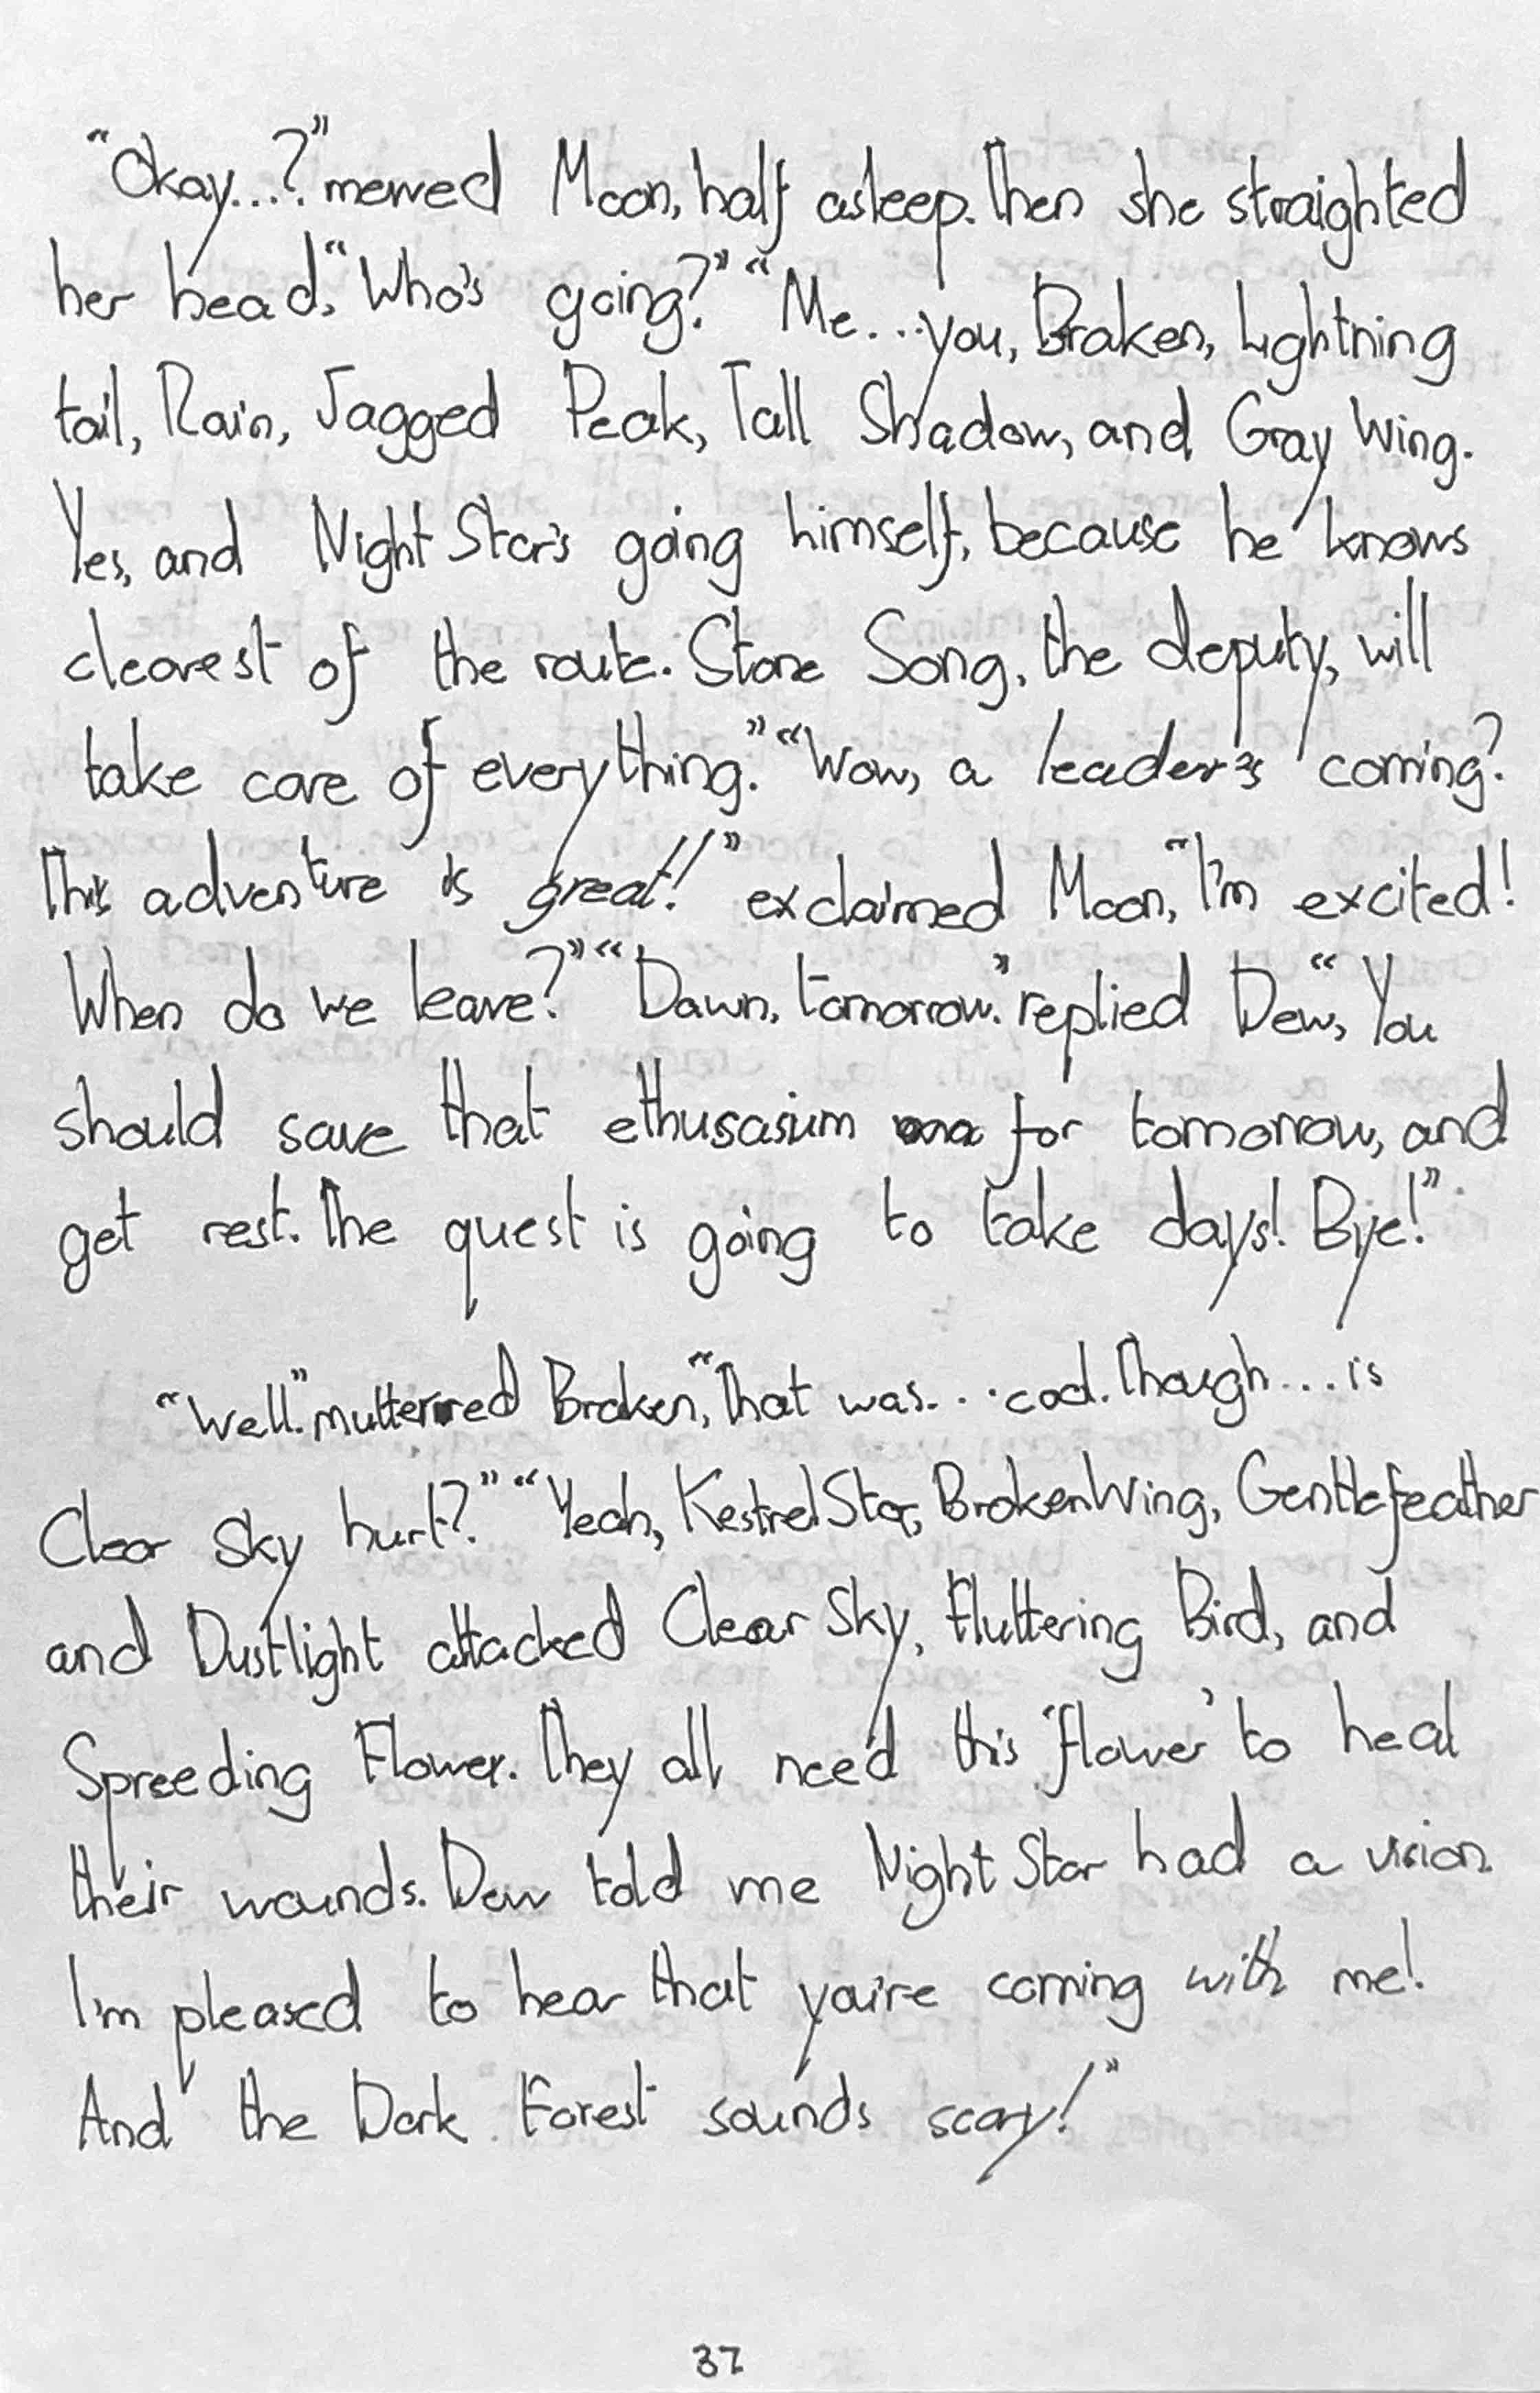 "Okay...?" mewed Moon, half asleep. Then she straighted
her head, "Who's going?" "Me...you, Braken, Lightning
tail, Rain, Jagged Peak, Tall Shadow, and Gray Wing.
Yes, and Night Star's going himself, because he knows
clearest of the route. Stone Song, the deputy, will
take care of everything." "Wow, a leader's coming?
This adventure is great!" exclaimed Moon, "I'm excited!
When do we leave?" "Dawn, tomorrow." replied Dew, "You
should save that ethusasium for tomorrow, and
get rest. The quest is going to take days! Bye!"
"Well." mutterred Braken, "That was...cool. Though...is
Clear Sky hurt?" "Yeah, KestrelStar, BrokenWing, Gentlefeather
and Dustlight attacked Clear Sky, Fluttering Bird, and
Spreeding Flower. They all need this 'flower' to heal
their wounds. Dew told me Night Star had a vision.
I'm pleased to hear that you're coming with me!
And the Dark Forest sounds scary!"
37